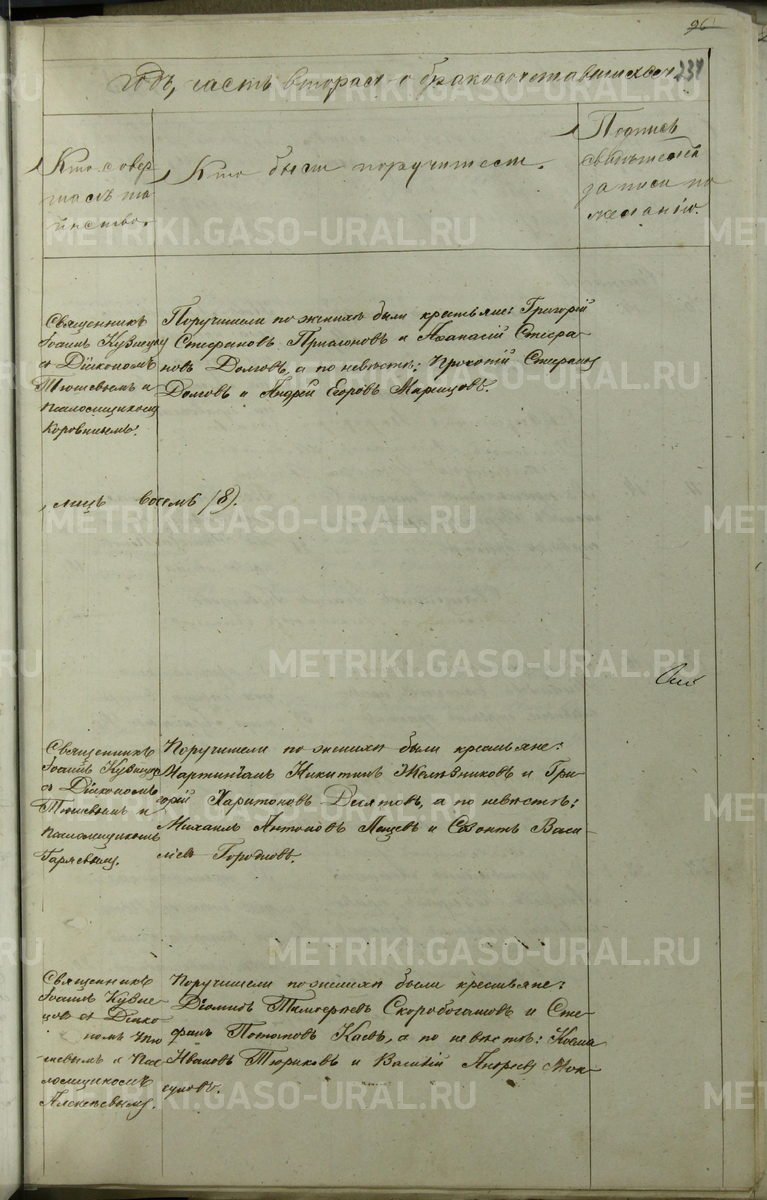 96
годъ, часть вторая о бракосочетавшихся
237
Кто совер-
шалъ та-
инство.
Кто были поручители.
Подпись
свидѣтелей
записи по
желанію.
Священникъ
Іоаннъ Кузнецовъ
съ Діакономъ
Тюшевымъ и
псаломщикомъ
Коровинымъ.
Поручители по женихѣ были крестьяне: Григорій
Стефановъ и Аѳанасій Стефа-
новъ Долговъ, а по невѣстѣ: Прокопій Стефановъ
Долговъ и Андрей Егоровъ
лицъ восемь (8).
Священникъ
Іоаннъ Кузнецовъ
съ Діакономъ
Тюшевымъ и
псаломщикомъ
Поручители по женихѣ были крестьяне:
Мартиніанъ Никитинъ Желѣзниковъ и Гри-
горій Харитоновъ Десятовъ, а по невѣстѣ:
Михаилъ Антоновъ и Созонтъ Васи-
льевъ Городновъ.
Священникъ
Іоаннъ Кузне-
цовъ съ Діако-
номъ Тю-
шевымъ и Пса-
ломщикомъ
Алексѣевымъ.
Поручители по женихѣ были крестьяне:
Діомидъ Скоробогатовъ и Сте-
фанъ Потаповъ Каевъ, а по невѣстѣ: Косма
Ивановъ Тюриковъ и Василій Андреевъ Мок-
METRIKI.GASO-URAL.RU